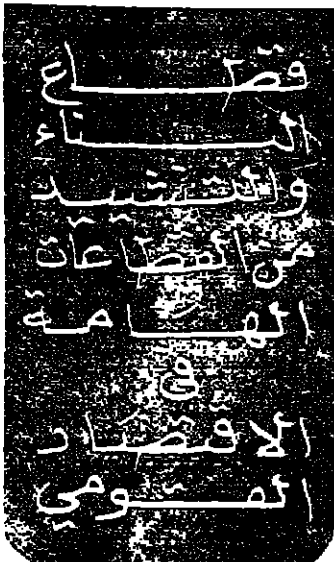 قطاع
البناء
والتشييد
من القطاعات
الهامة
في
الاقتصاد
القومي